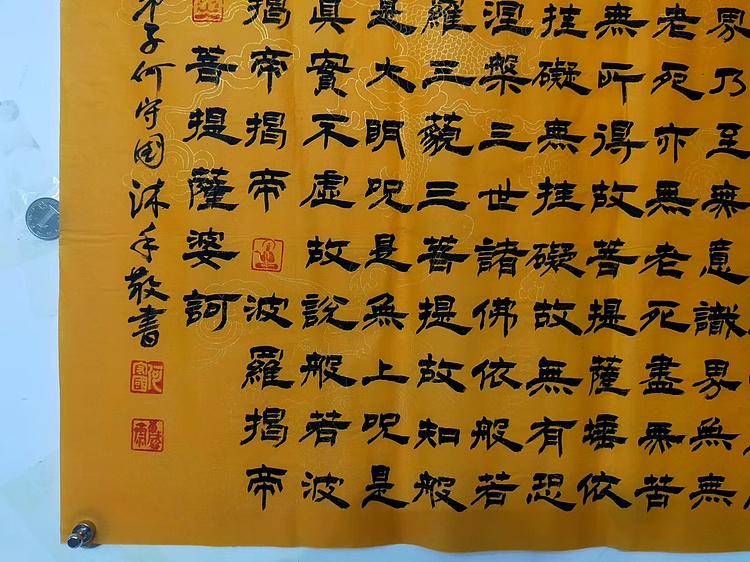 界乃至無意識界無無
老死亦無老死盡無苦
無所得故菩提薩埵依
挂礙無挂礙故無有恐
涅槃三世諸佛依般若
羅三藐三菩提故知般
是大眀呪是無上呪是
真實不虛故說般若波
揭帝揭帝波羅揭帝
菩提薩婆訶
弟子何守國沐手敬書